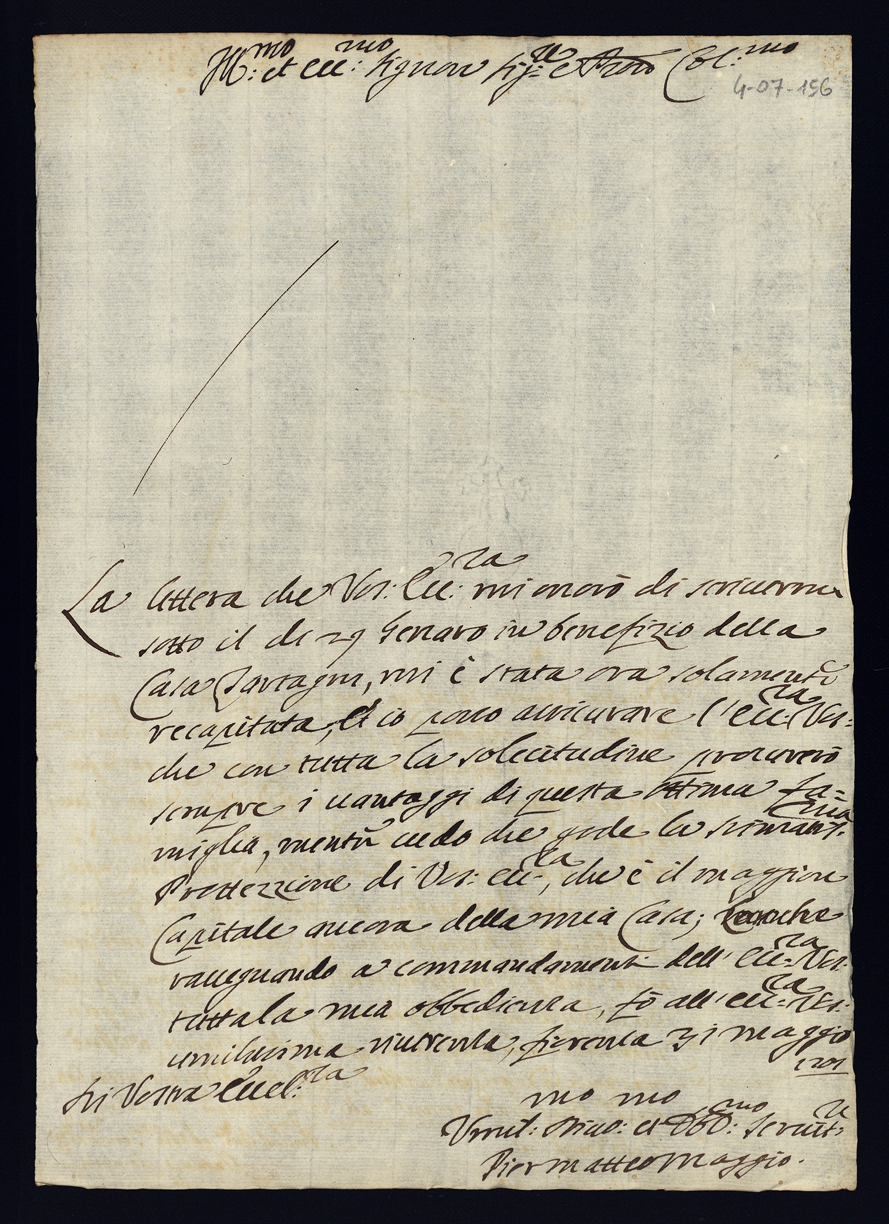 Ill:mo et Ecc:mo Signore Sig:re e Prone Col:mo
4-07-156
La lettera che Vos: Ecc:za mi onorò di scriverme
sotto il di 29 Genaro in benefizio della
Casa Zartagni, mi è stata ora solamente
recapitata, Et io posso assicurare l'Ecc:za Vos:
che con tutta la solecitudine procurerò
sempre i vantaggi di questa ottima fa=
miglia, mentre credo che gode la stimatis:ma
Protezzione di Vos: Ecc:za, che è il maggiore
Capitale ancora della mia Casa;
rassegnando a commandamenti dell'Ecc:za Vos:
tutta la mia obbedienza, fò all'Ecc:za Vos:
umilissima riverenza, fiorenza 31 maggio
1701
Di Vostra Eccel:za
Umil:mo Divo:mo et Obb:mo Servit:re
Piermatteo Maggio.